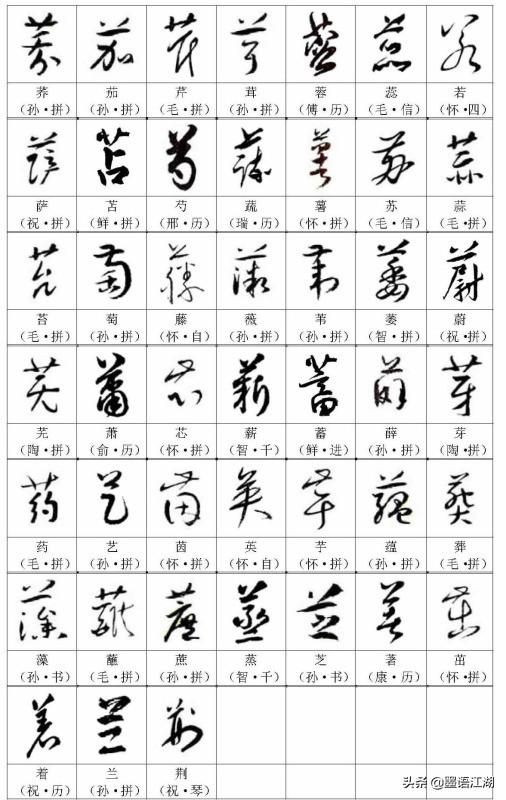 荞 茄 芹 茸 蓉 蕊 若
(孙·拼) (孙·拼) (毛·拼) (孙·拼) (傅·历) (毛·信) (怀·四)
萨 苫 芍 蔬 薯 苏 蒜
(祝·拼) (鲜·拼) (邢·历) (瑞·历) (怀·拼) (毛·信) (毛·拼)
苔 萄 藤 薇 苇 萎 蔚
(毛·拼) (孙·拼) (怀·自) (孙·拼) (孙·拼) (智·拼) (祝·拼)
芜 萧 芯 薪 蓄 薛 芽
(陶·拼) (俞·历) (怀·拼) (智·千) (鲜·进) (孙·拼) (陶·拼)
药 艺 茵 英 芋 蕴 葬
(毛·拼) (孙·拼) (怀·拼) (怀·自) (怀·拼) (孙·拼) (毛·拼)
藻 蘸 蔗 蒸 芝 著 茁
(孙·书) (毛·拼) (孙·拼) (智·千) (孙·书) (康·历) (怀·拼)
着 兰 荆
(祝·历) (孙·拼) (祝·琴)
头条 @墨语江湖